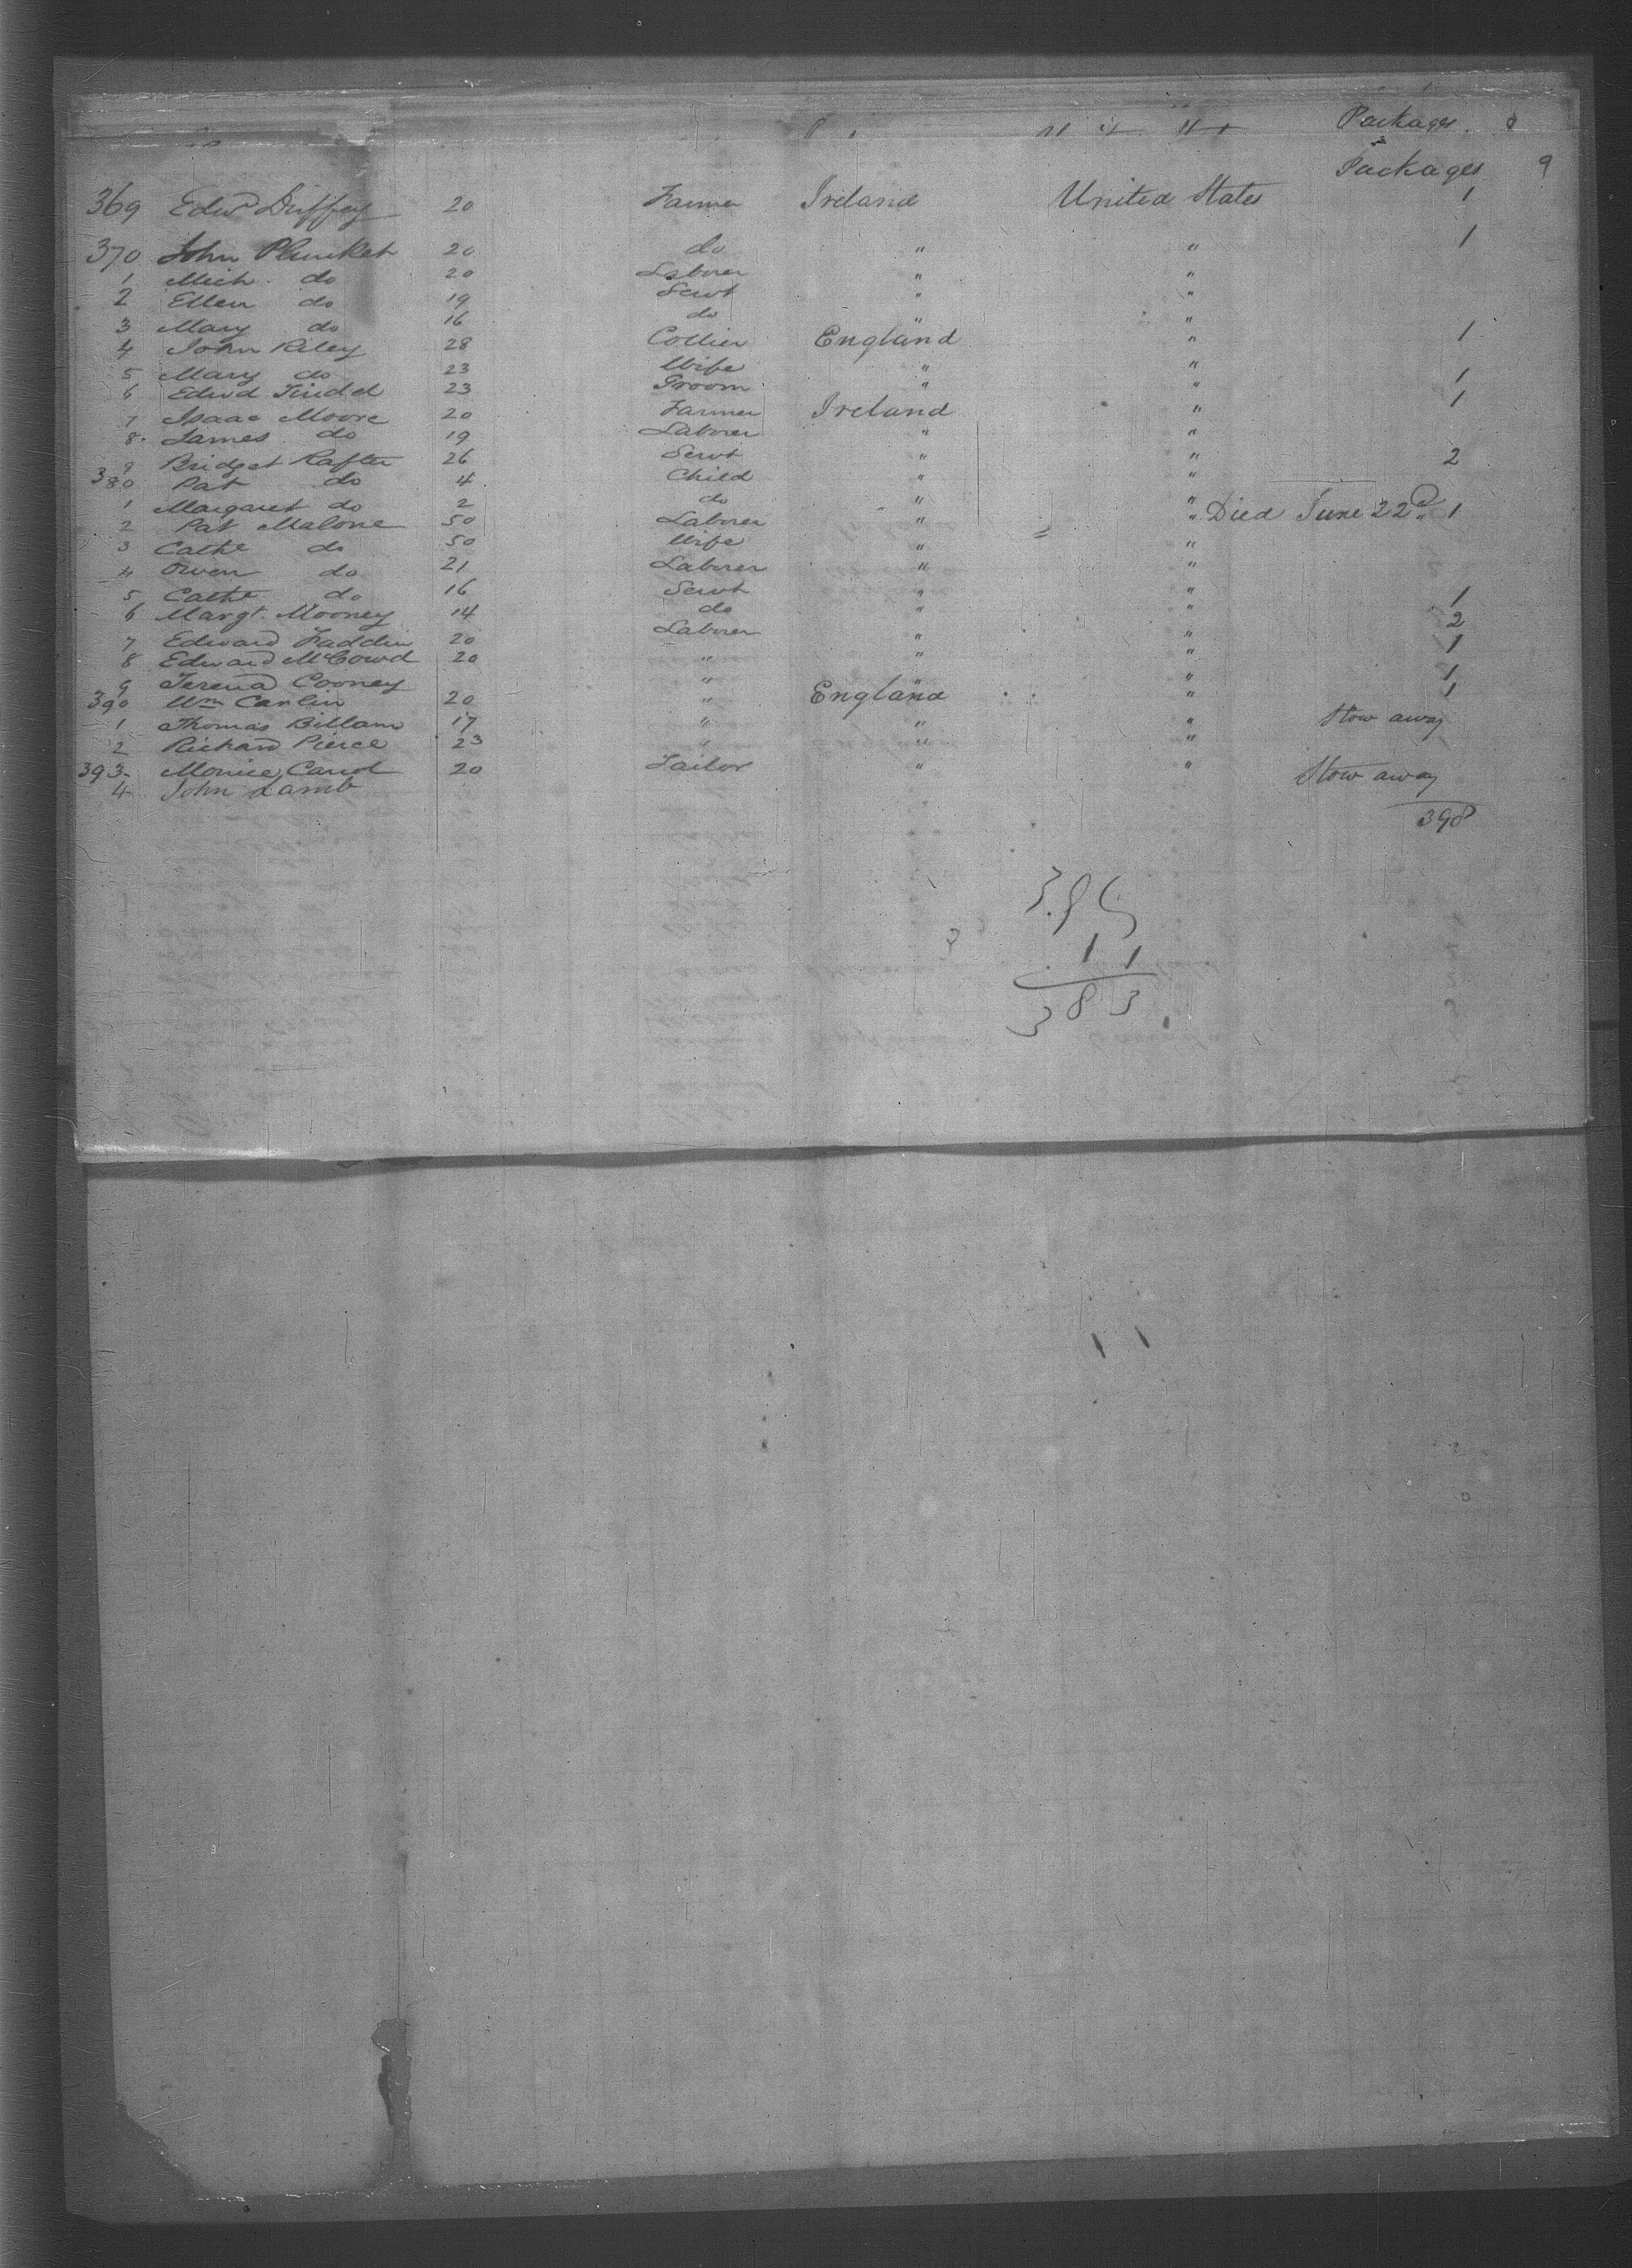 Packages
Packages 9
369 Edwd Duffey 20 Farmer Ireland United States 1
370 John Plunket 20 do " " 1
1 Mich do 20 Laborer " "
2 Ellen do 19 Servt " "
3 Mary do 16 do " "
4 John Riley 28 Collier England " 1
5 Mary do 23 Wife " "
6 Edwd 23 Groom " " 1
7 Isaac Moore 20 Farmer Ireland " 1
8 James do 19 Laborer " "
9 Bridget Rafter 26 Servt " " 2
380 Pat do 4 Child " "
1 Margaret do 2 do " "
2 Pat Malone 50 Laborer " " Died June 22d 1
3 Cathe do 50 Wife " "
4 Owen do 21 Laborer " "
5 Cathe do 16 Servt " " 1
6 Margt. Mooney 14 do " " 2
7 Edward Faddin 20 Laborer " " 1
8 Edward 20 " " "
9 Cooney " " 1
390 Wm Carlin 20 " England " 1
1 Thomas Billam 17 " " " Stow away
2 Richard Pierce 23 " " "
393 20 Tailor " " Stow away
4 John Lamb
398
11
383